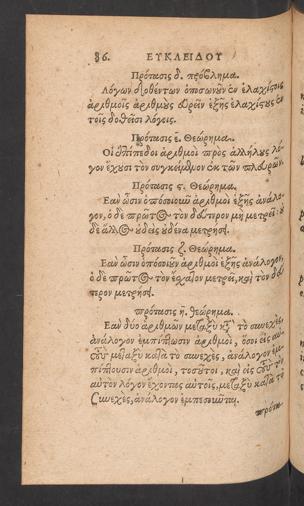 86. ΕΥΚΛΕΙΔΟΥ
Πρότασις δ. πρόβλημα.
Λόγων δοθέντων ὁποσωνοῦν ἐν ἐλαχίστοις
ἀριθμοῖς ἀριθμοὺς εὑρεῖν ἑξῆς ἐλαχίστους ἐν
τοῖς δοθεῖσι λόγοις.
Πρότασις ε. Θεώρημα.
Οἱ ἐπίπεδοι ἀριθμοὶ πρὸς ἀλλήλους λό-
γον ἔχουσι τὸν συγκείμενον ἐκ τῶν πλευρῶν.
Πρότασις ϛ. Θεώρημα.
Ἐὰν ὦσιν ὁποσοιοῦν ἀριθμοὶ ἑξῆς ἀνάλο-
γον, ὁ δὲ πρῶτος τὸν δεύτερον μὴ μετρεῖ· οὐ
δὲ ἄλλος οὐδεὶς οὐδένα μετρήσει.
Πρότασις ζ. Θεώρημα.
Ἐὰν ὦσιν ὁποσοιοῦν ἀριθμοὶ ἑξῆς ἀνάλογον,
ὁ δὲ πρῶτος τὸν ἔσχατον μετρεῖ, καὶ τὸν δεύ
τερον μετρήσει.
πρότασις η. θεώρημα.
Ἐὰν δύο ἀριθμῶν μεταξὺ κτ τὸ συνεχὲς
ἀνάλογον ἐμπίπτωσιν ἀριθμοὶ, ὅσοι εἰς αὐ-
τοὺς μεταξὺ κατὰ τὸ συνεχὲς, ἀνάλογον ἐμ-
πίπτουσιν ἀριθμοὶ, τοσοῦτοι, καὶ εἰς τοὺς τὸν
αὐτὸν λόγον ἔχοντας αὐτοῖς, μεταξὺ κατὰ τὸ
συνεχὲς, ἀνάλογον ἐμπεσοῦνται.
πρότα-